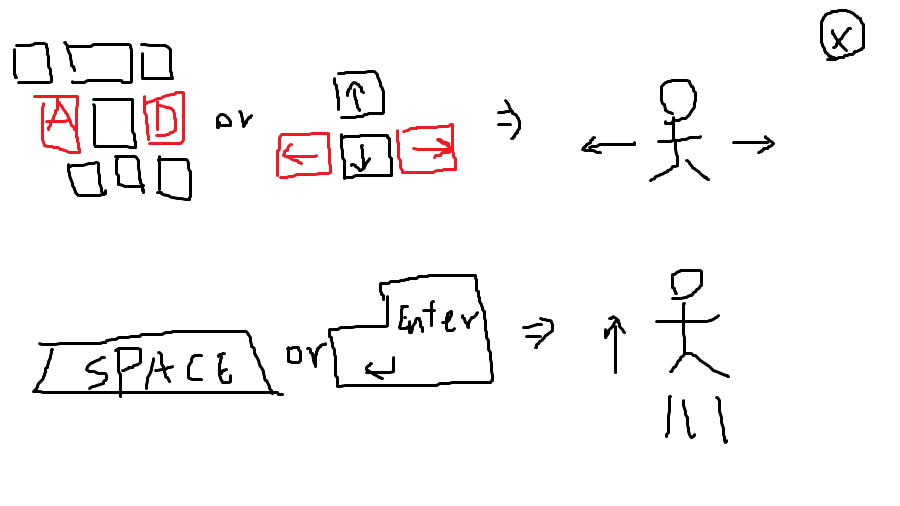 X
A D or ↑ ← ↓ → ⇒ ← →
SPACE or Enter ↵ ⇒ ↑